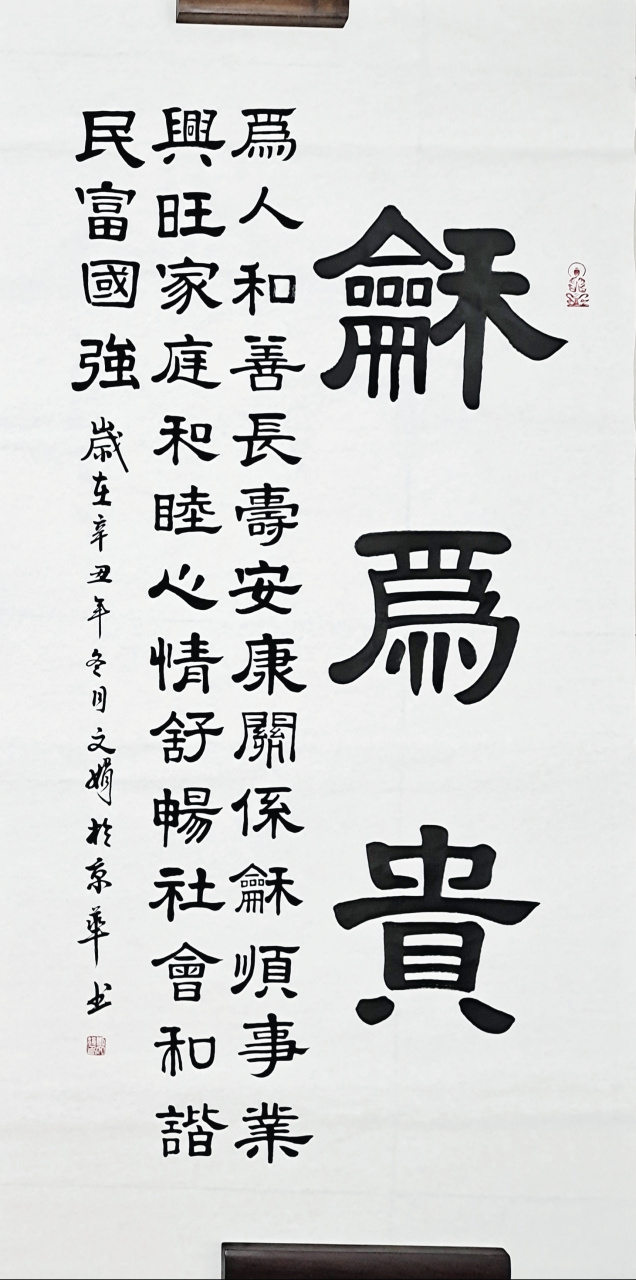 龢為貴
為人和善長壽安康關係龢順事業
興旺家庭和睦心情舒暢社會和諧
民富國強
歲在辛丑年冬月文娟於京華书